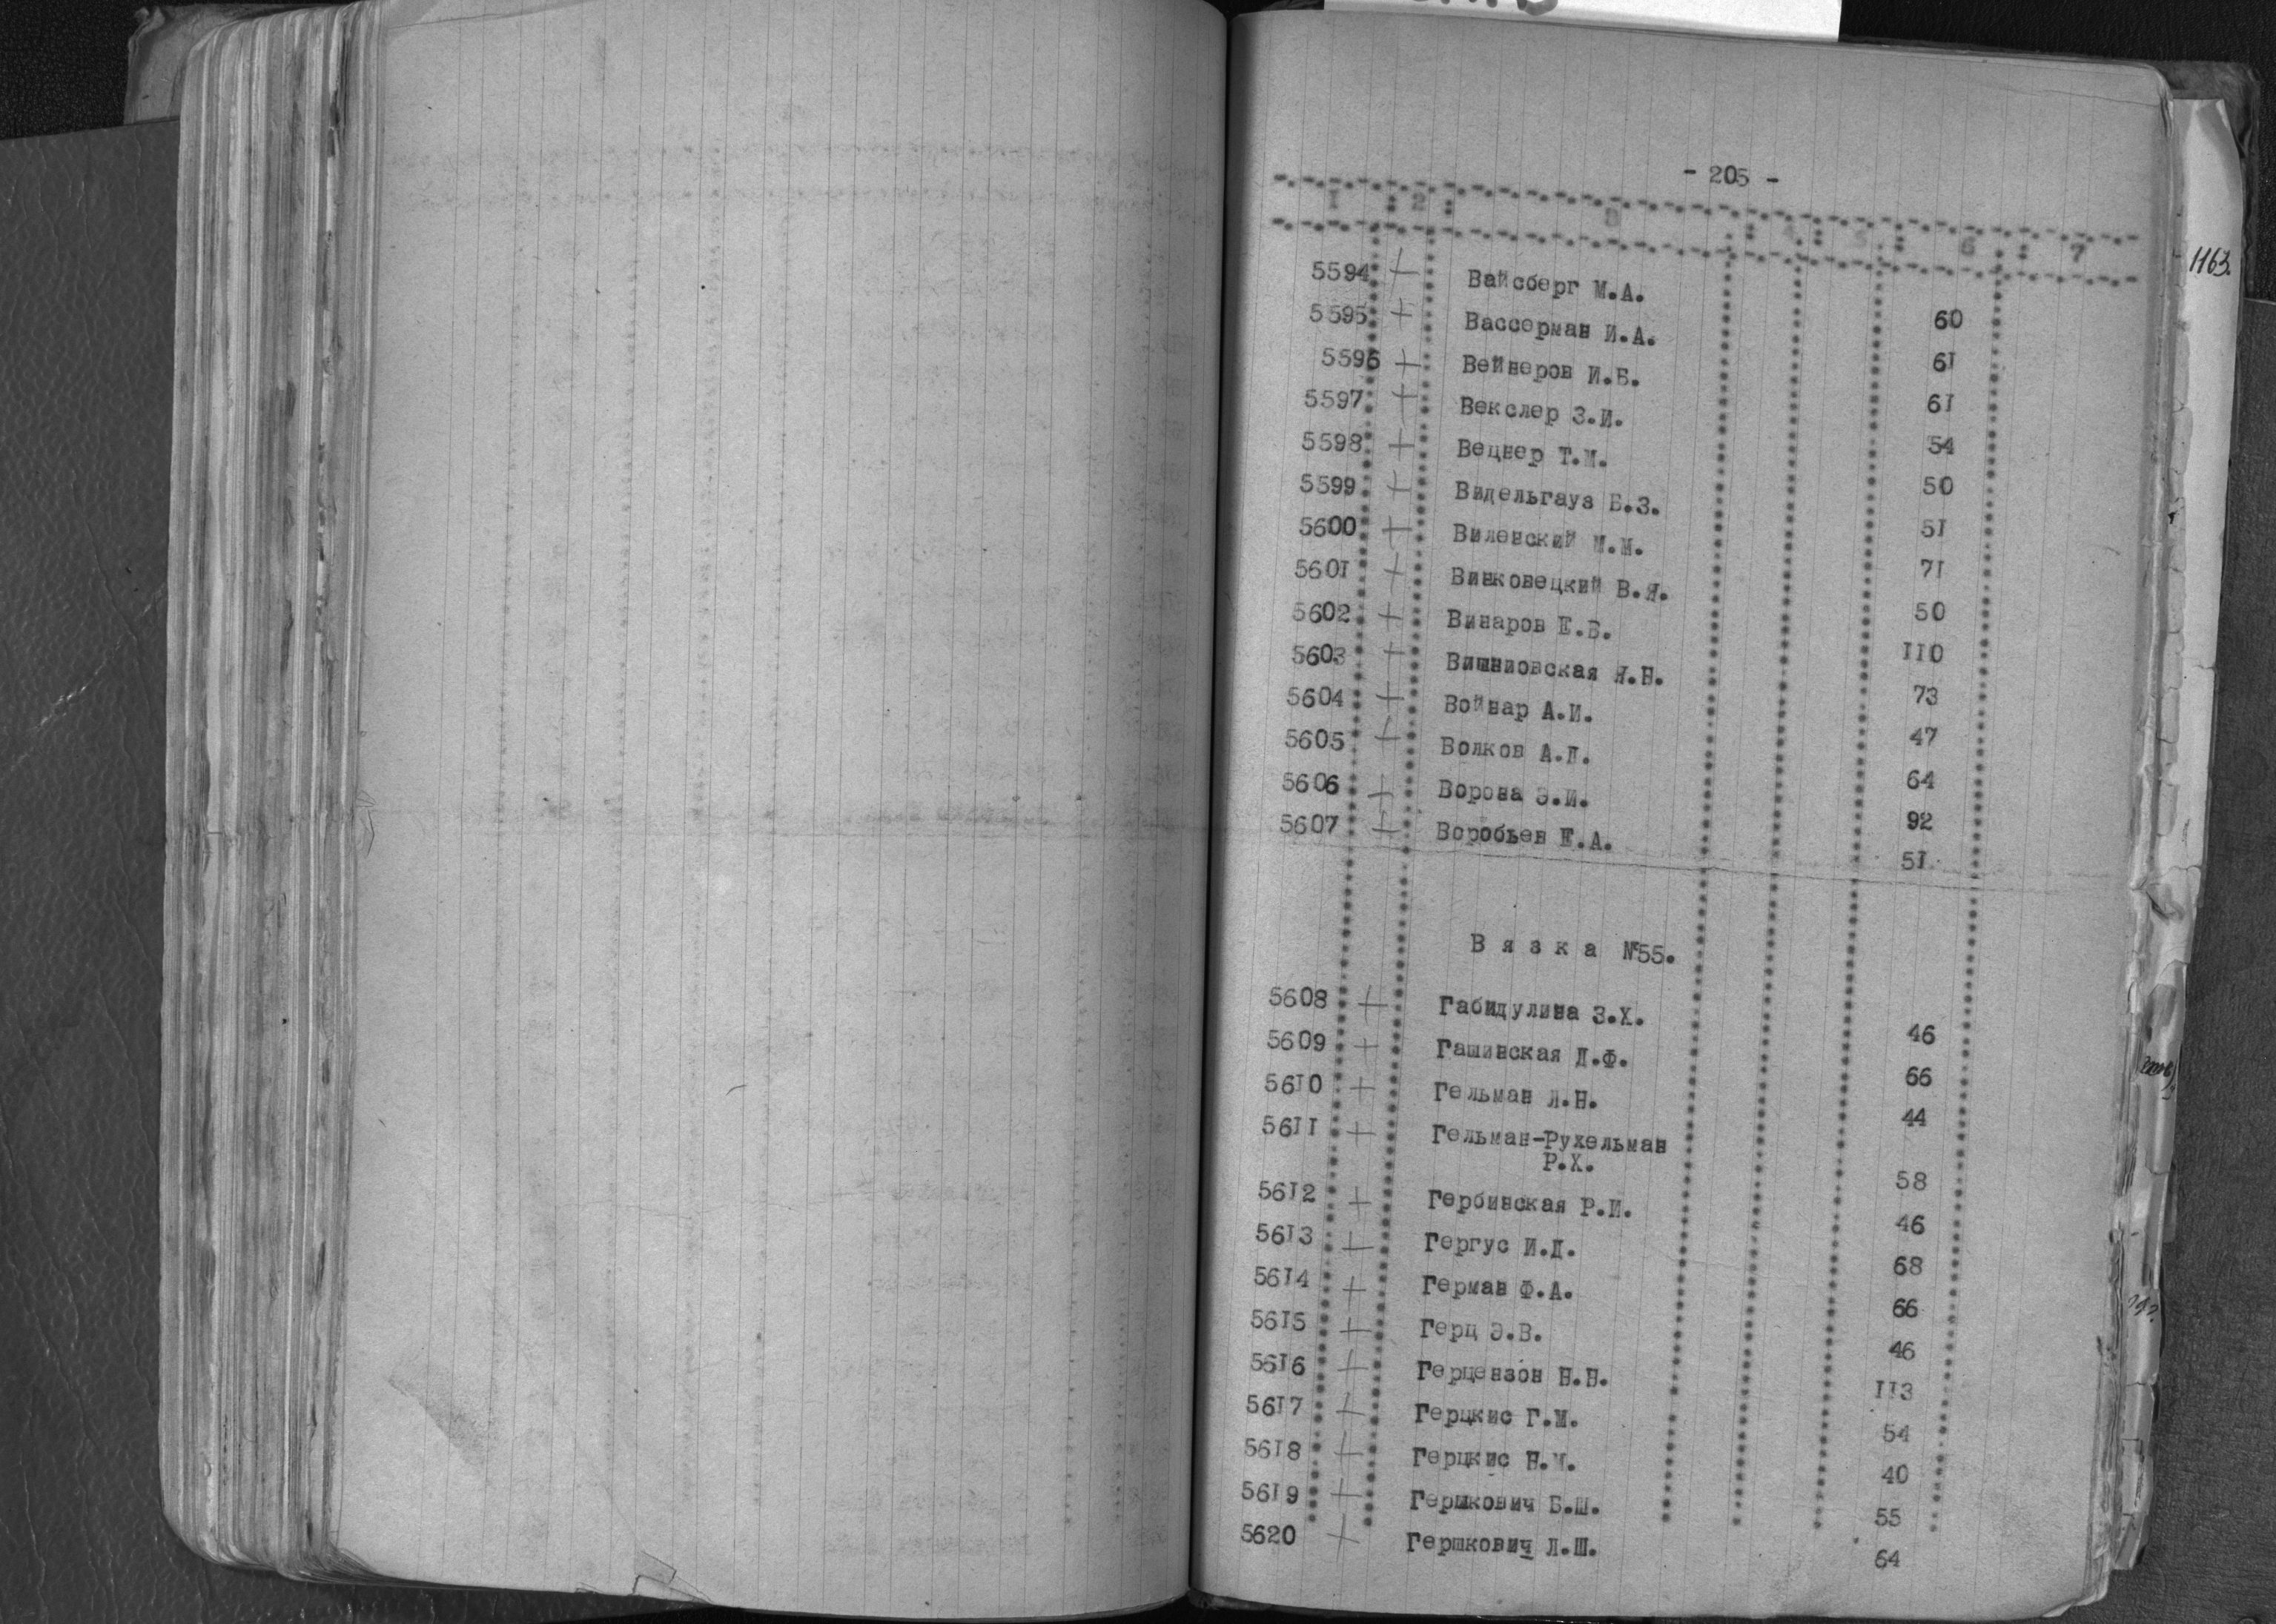 - 205 -
1 : 2 : 3 : 4 : 5 : 6 : 7
1163.
5594 + Вайсберг М.А. 60
5595 + Вассерман И.А. 61
5596 + Вейнеров И.Б. 61
5597 + Векслер З.И. 54
5598 + Вецнер Т.М. 50
5599 + Видельгауз Б.З. 51
5600 + Виленский М.М. 71
5601 + Винковецкий В.Я. 50
5602 + Винаров Е.Б. 110
5603 + Вишниовская Я.Н. 73
5604 + Войнар А.И. 47
5605 + Волков А.Л. 64
5606 + Ворона Э.И. 92
5607 + Воробьев Е.А. 51
Вязка №55.
5608 + Габидулина З.Х. 46
5609 + Гашинская Д.Ф. 66
5610 + Гельман Л.Н. 44
5611 + Гельман-Рухельман
Р.Х. 58
5612 + Гербинская Р.И. 46
5613 + Гергус И.Д. 68
5614 + Герман Ф.А. 66
5615 + Герц Э.В. 46
5616 + Герцензон Н.Н. 113
5617 + Герцкис Г.М. 54
5618 + Герцкис Н.М. 40
5619 + Гершкович Б.Ш. 55
5620 + Гершкович Л.Ш. 64